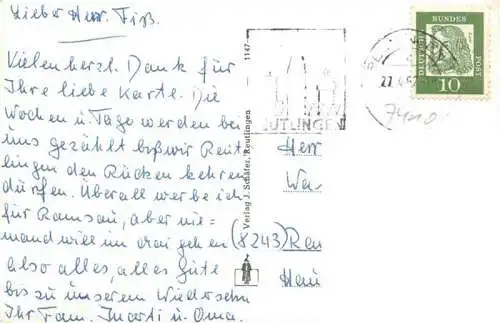 Lieber Herr Fiß.
Vielen herzl. Dank für
Ihre liebe Karte. Die
Wochen u. Tage werden bei
uns gezählt biß wir Reut-
lingen den Rücken kehren
dürfen. Überall werbe ich
für Ramsau, aber nie-
mand will im Mai gehen
also alles, alles Gute
bis zu unserem Wiedersehn
Ihr Fam. u. Oma.
1147
Verlag J. Schäfer, Reutlingen
UTLINGEN
27.4.6
DEUTSCHE
BUNDES
POST
10
7410
Herr
(8243) Ram